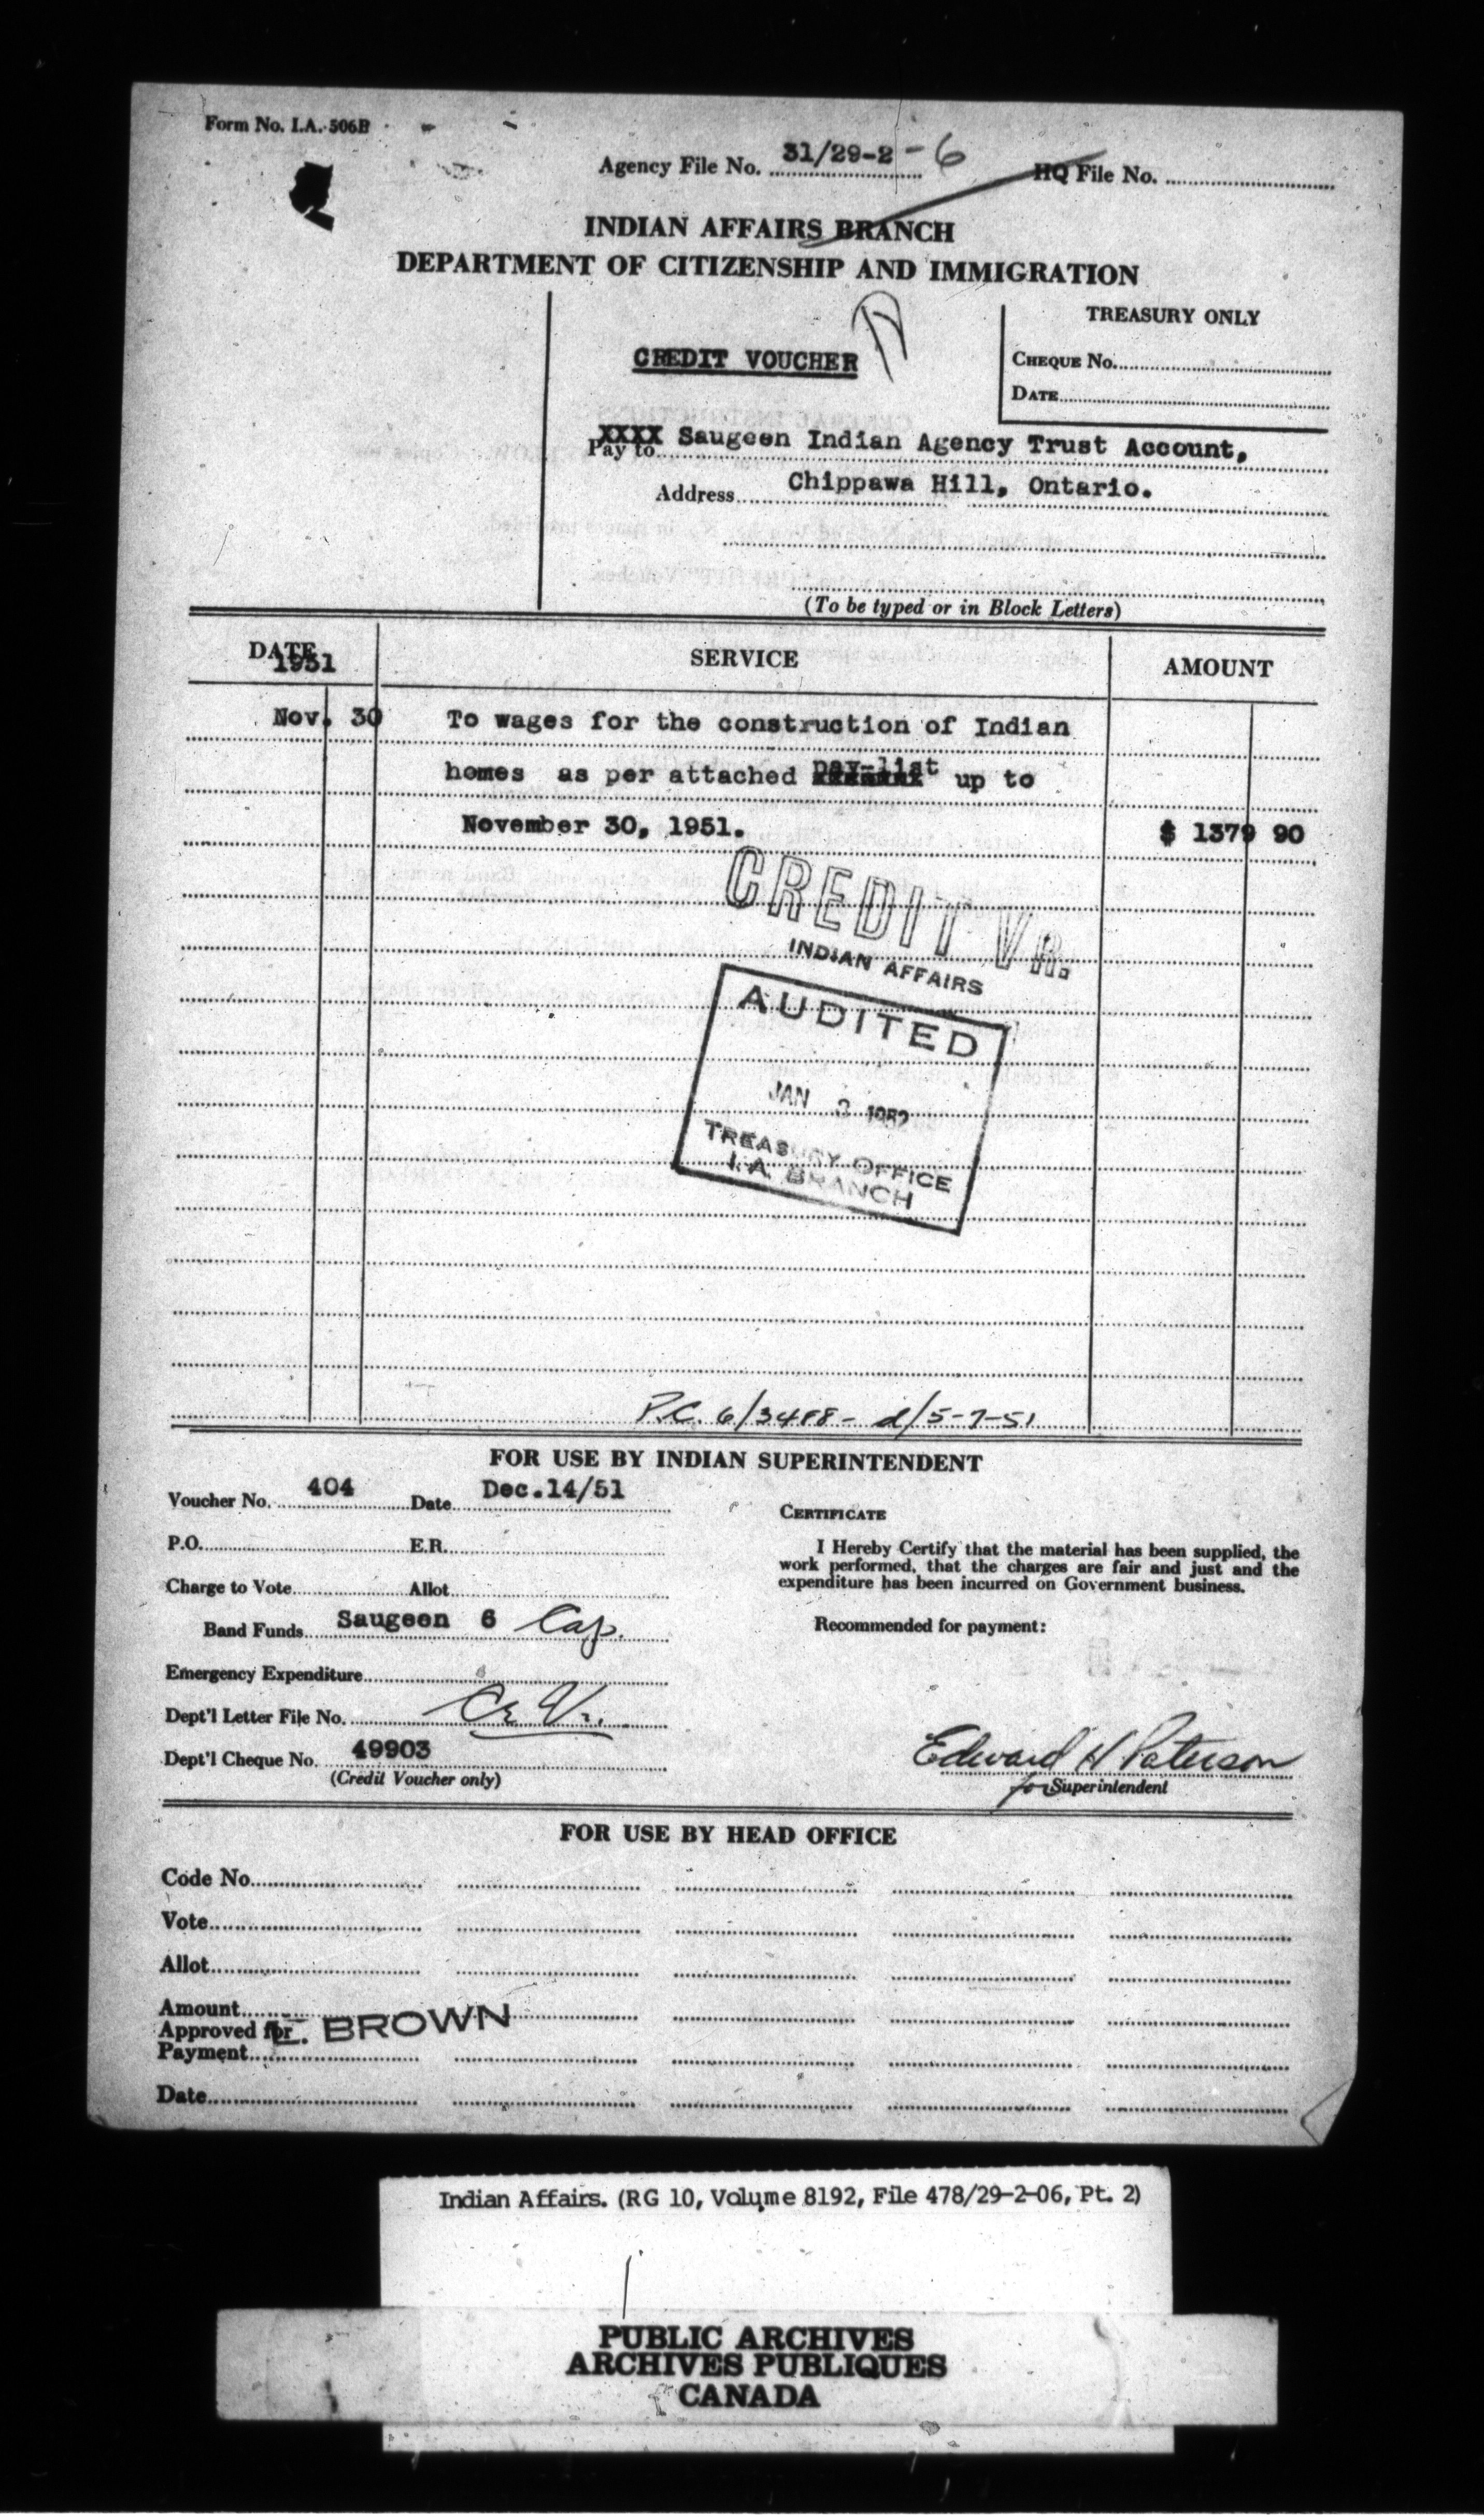 Form No. I.A. 506B
Agency File No. 31/29-2 - 6 HQ File No.
INDIAN AFFAIRS BRANCH
DEPARTMENT OF CITIZENSHIP AND IMMIGRATION
TREASURY ONLY
CREDIT VOUCHER
CHEQUE No.
DATE
Pay to XXXX Saugeen Indian Agency Trust Account,
Address Chippawa Hill, Ontario.
(To be typed or in Block Letters)
DATE SERVICE AMOUNT
1951
Nov. 30 To wages for the construction of Indian
homes as per attached pay-list up to
November 30, 1951. $ 1379 90
CREDIT VR.
INDIAN AFFAIRS
AUDITED
JAN 3 1952
TREASURY OFFICE
I.A. BRANCH
P.C. 6/3488 - d/5-7-51
FOR USE BY INDIAN SUPERINTENDENT
Voucher No. 404 Date Dec.14/51
CERTIFICATE
P.O. E.R.
I Hereby Certify that the material has been supplied, the
work performed, that the charges are fair and just and the
expenditure has been incurred on Government business.
Charge to Vote Allot
Band Funds Saugeen 6 Cap.
Recommended for payment:
Emergency Expenditure
Dept'l Letter File No. Cr Vr.
Dept'l Cheque No. 49903
(Credit Voucher only)
Edward H Paterson
for Superintendent
FOR USE BY HEAD OFFICE
Code No.
Vote
Allot
Amount
Approved for
E. BROWN
Payment
Date
Indian Affairs. (RG 10, Volume 8192, File 478/29-2-06, Pt. 2)
PUBLIC ARCHIVES
ARCHIVES PUBLIQUES
CANADA